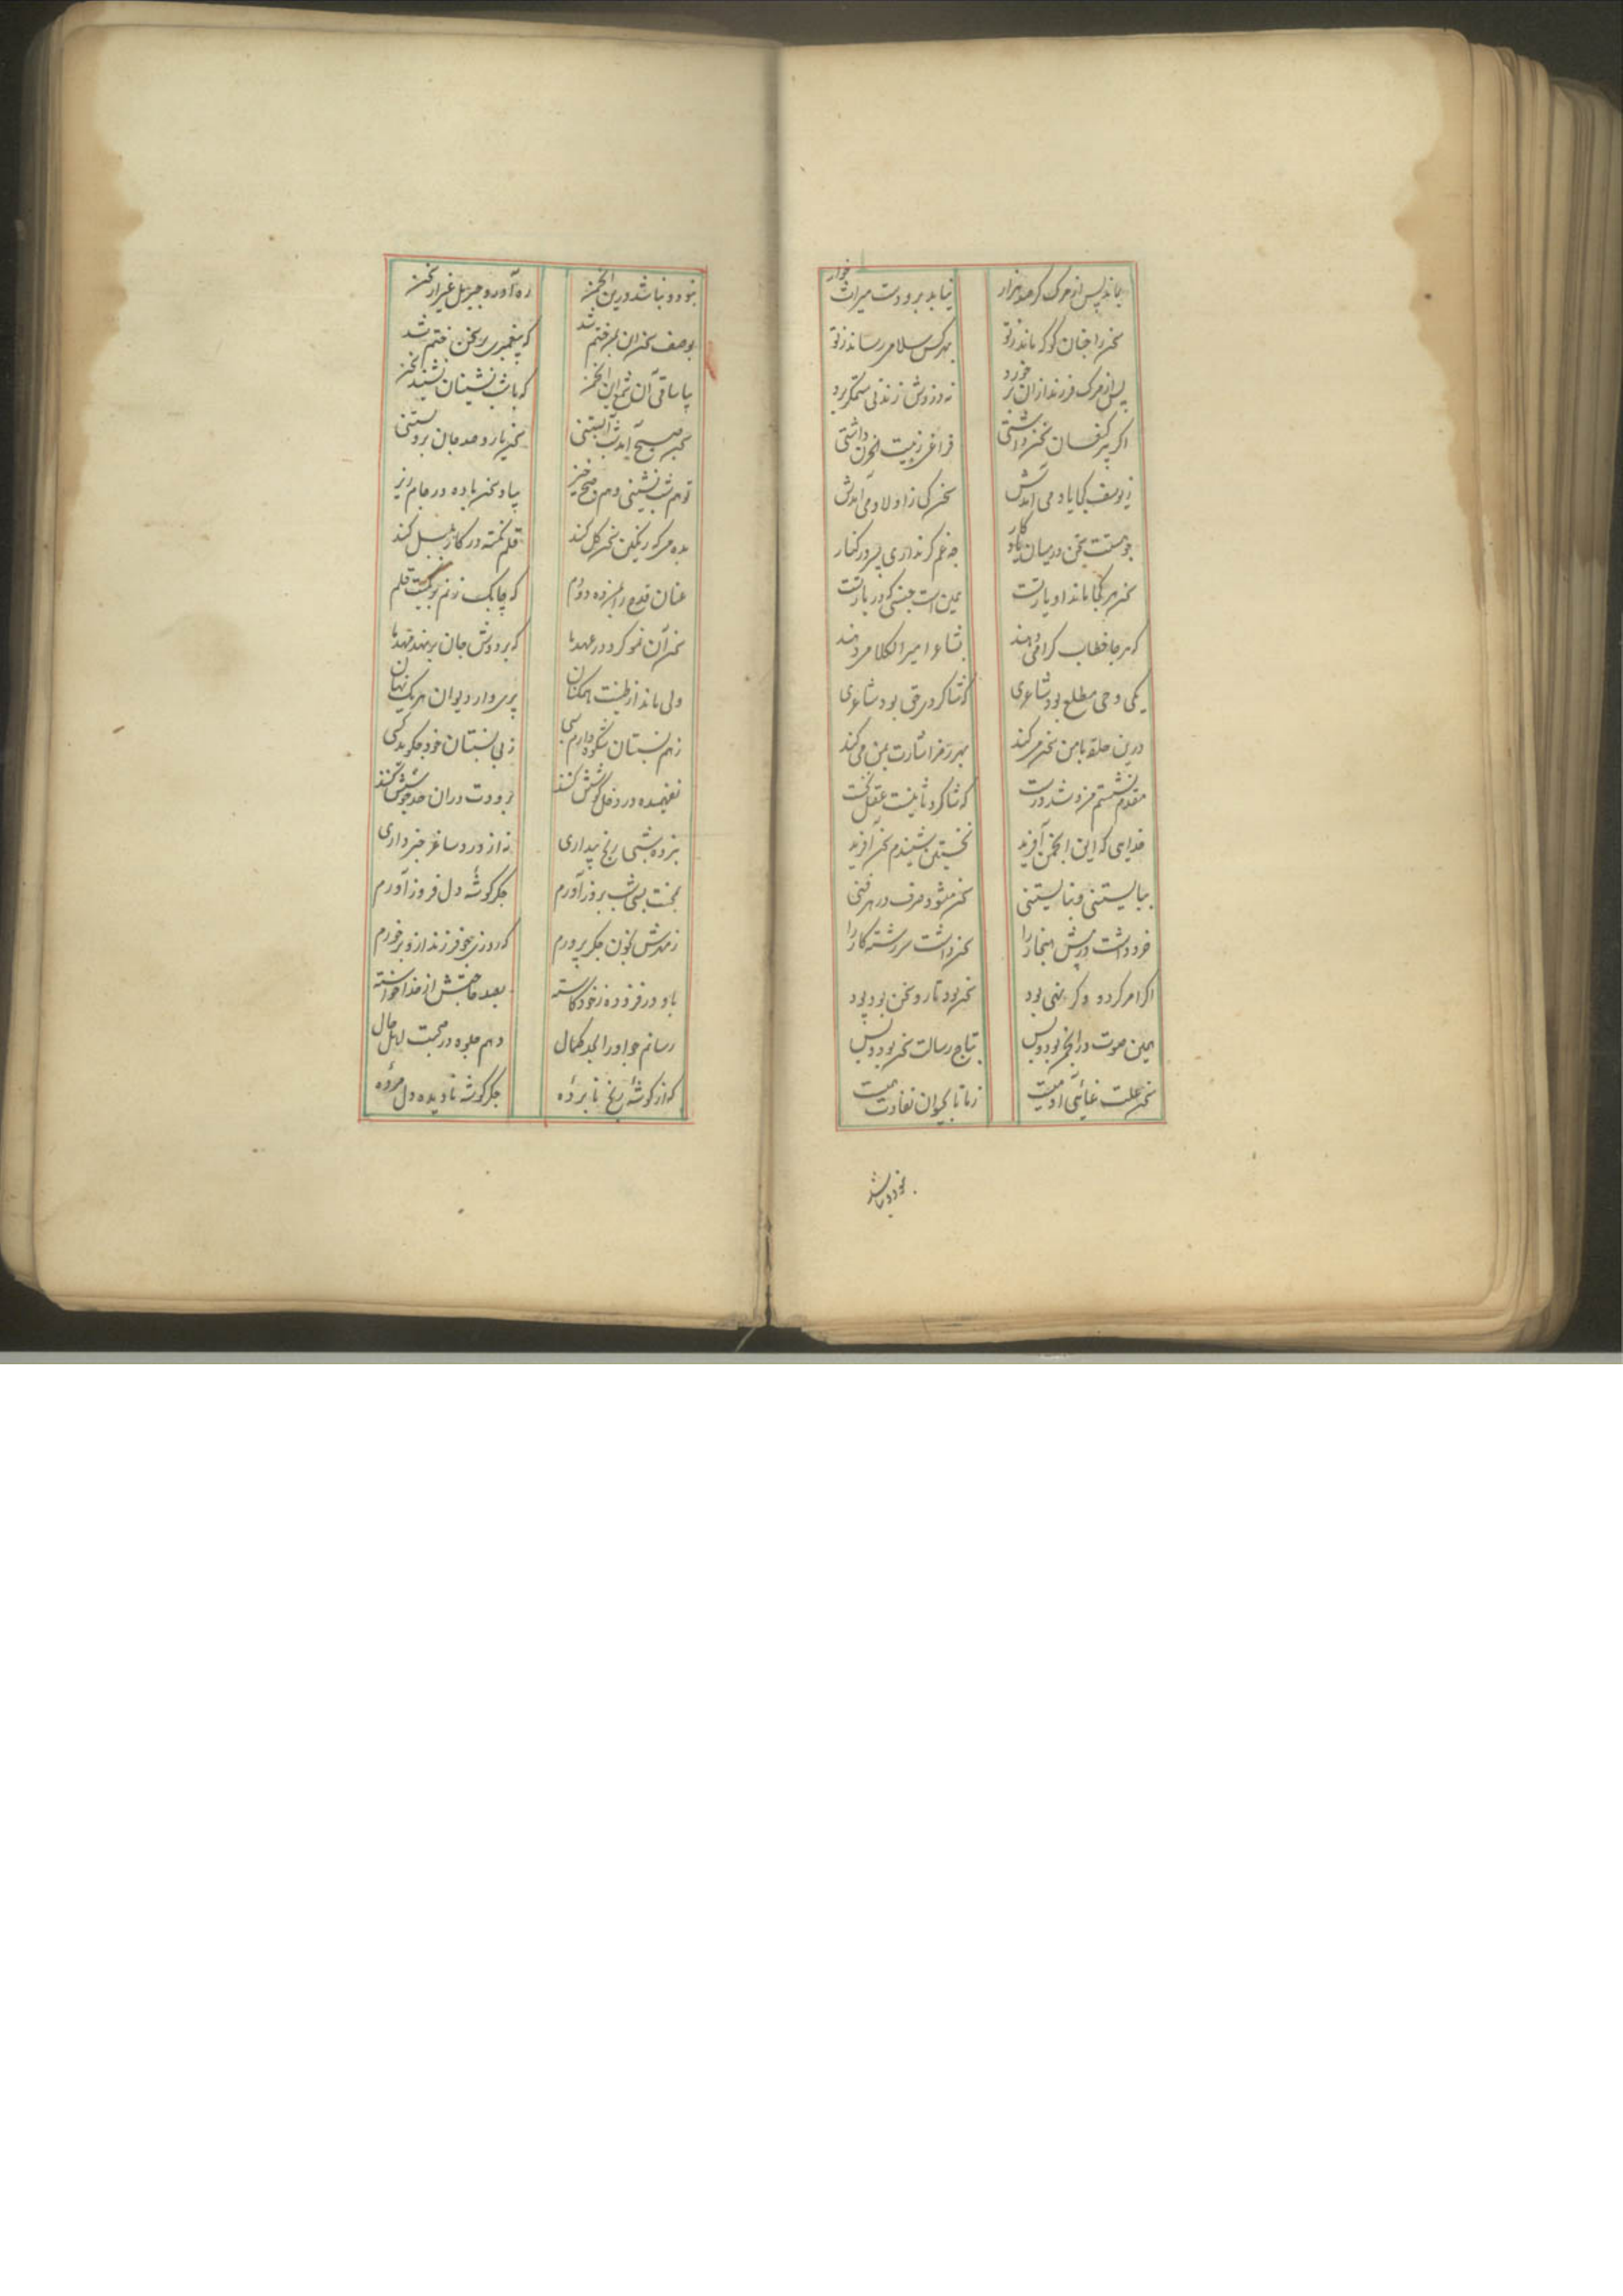 بماند پس از مرگ گر صد هزار نیابد برو دست میراث خوار
سخن را چنان گو که ماند ز تو بهر کس سلامی رساند ز تو
پس از مرگ فرزند ازان بر خورد نه دزدش ز رندی ستمگر برد
اگر پیر کنعان سخن داشتی فراغی ز بیت الحزن داشتی
ز یوسف کجا یاد می آمدش سخن کی ز اولاد می آمدش
چو هستت سخن در میان یادگار چه غم گر نداری پسر در کنار
سخن هر کجا ماند او یار تست همین است جنسی که در بار تست
که هر جا خطاب گرامی دهند بشاعر امیر الکلامی دهند
یکی وحی مطلع بود شاعری که شاگرد حق بود شاعری
درین حلقه با من سخن می کند بهر رمز اشارت بمن می کند
مقدم نشستم فزو شد درست که شاگرد ثانیست عقل نخست
خدایی که این انجمن آفرید نخستین شنیدم سخن آفرید
ببایستنی و نبایستنی سخن میشود صرف در هر فنی
خرد داشت در پیش هنجار را سخن داشت سررشته کار را
اگر امر کرد و گر نهی بود سخن بود تار و سخن بود پود
همین صوت در انجمن بود و بس بتاج رسالت سخن بود و بس
سخن علت غائی آدمیست ز ما تا بحیوان تفاوت همیست
نبود و نباشد درین انجمن ره آورد جبریل غیر از سخن
بوصف سخن این سخن ختم شد که پیغمبری بر سخن ختم شد
بیا ساقی آن شمع این انجمن که با شب نشینان نشیند سخن
تو هم شب نشینی و هم صبح خیز بیاد سخن باده در جام ریز
بده می که رنگین سخن گل کند قلم نکته در کار بلبل کند
عنان قدح را بمن ده دو دم که چابک زنم بر کمیت قلم
سخن آن نمو کرد در عهدها که بر دوش جان بر نهد مهدها
ولی ماند از طینت ممکنان پری وار دیوان هر یک نهان
ز هم نسبتان شکوه دارم بسی ز بی نسبتان خود چه گوید کسی
نفهمیده در دخل کوشش کنند برودت دران حد که جوشش کنند
نبرده شبی رنج بیداری نه از دور ساغر خبرداری
بمحنت بسی شب بروز آورم جگر گوشه دل فروز آورم
ز مهرش بخون جگر پرورم که روزی چو فرزند ازو بر خورم
باو در فزوده ز خود کاسته بصد حاجتش از خدا خواسته
رسانم چو او را بحد کمال دهم جلوه در صحبت اهل حال
که از گوشه رنج نابرده جگر گوشه نادیده دل مرده
نبود و نباشد